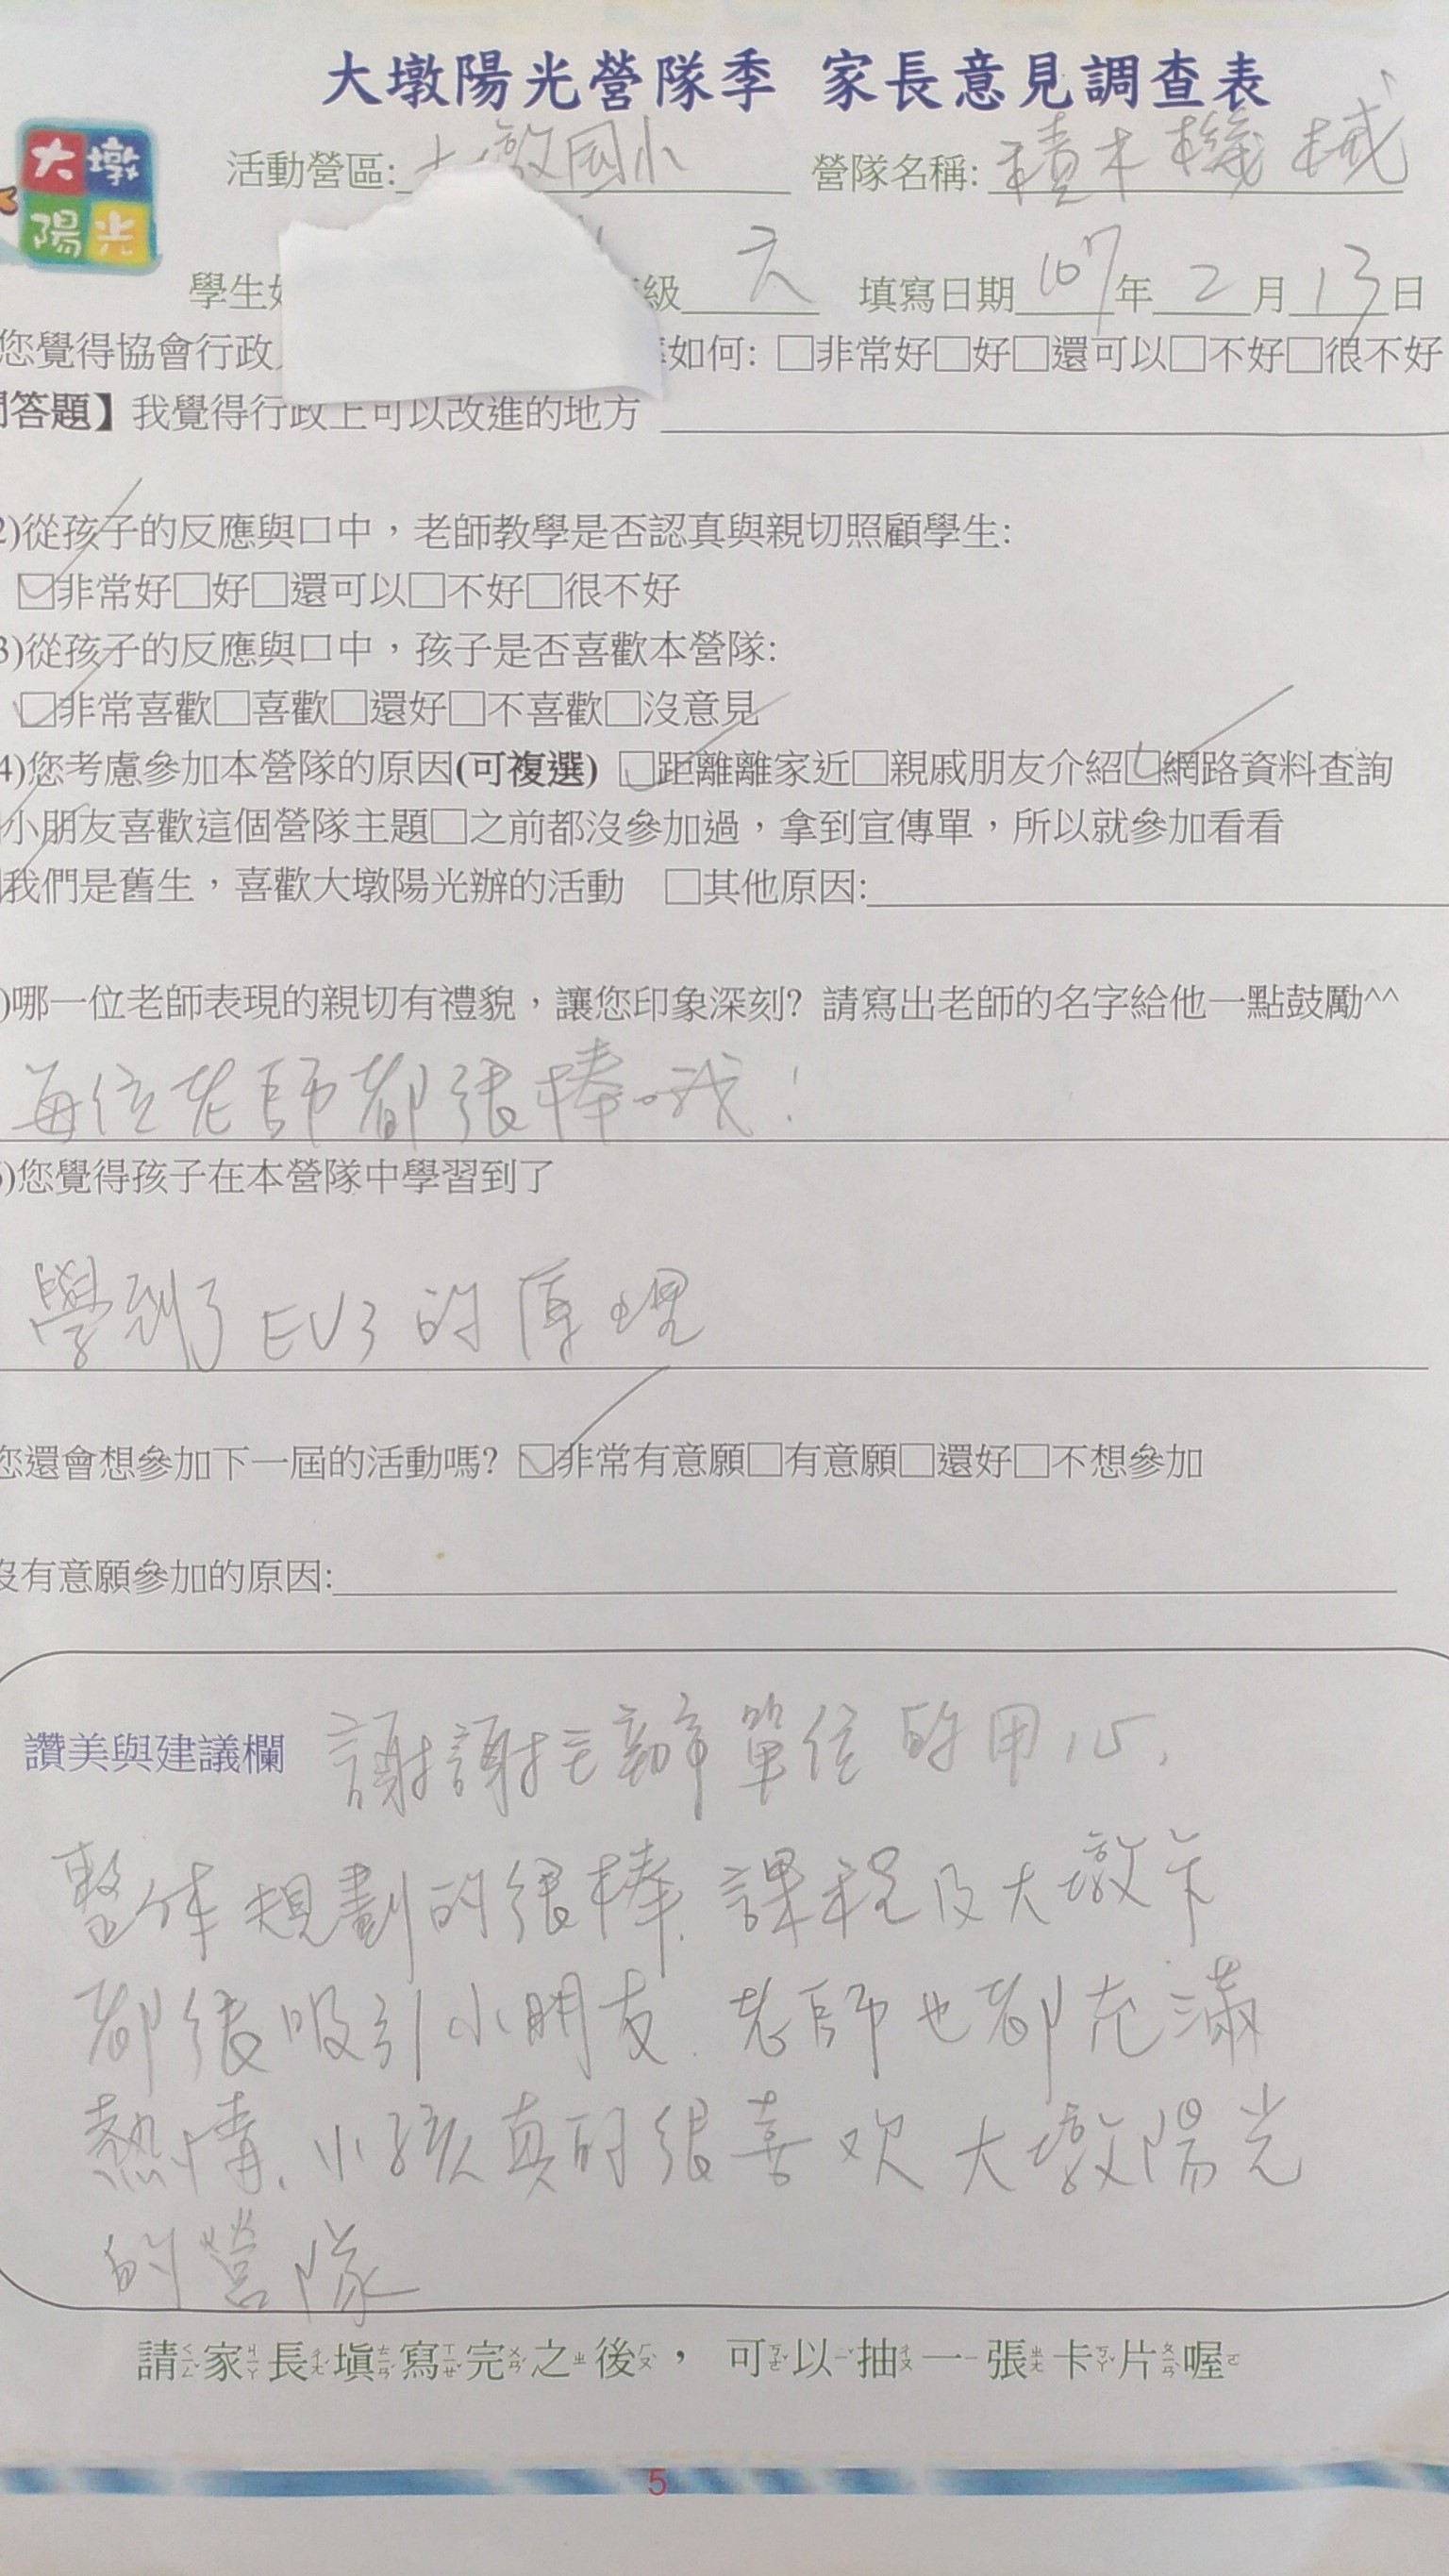 大墩陽光營隊季 家長意見調查表
大墩
陽光
活動營區: 大墩國小 營隊名稱: 積木機械
學生 級 六 填寫日期 107 年 2 月 13 日
您覺得協會行政 如何: □非常好□好□還可以□不好□很不好
答題】我覺得行政上可以改進的地方
2)從孩子的反應與口中，老師教學是否認真與親切照顧學生:
☑非常好□好□還可以□不好□很不好
3)從孩子的反應與口中，孩子是否喜歡本營隊:
☑非常喜歡□喜歡□還好□不喜歡□沒意見
4)您考慮參加本營隊的原因(可複選) ☑距離離家近□親戚朋友介紹☑網路資料查詢
小朋友喜歡這個營隊主題□之前都沒參加過，拿到宣傳單，所以就參加看看
我們是舊生，喜歡大墩陽光辦的活動 □其他原因:
)哪一位老師表現的親切有禮貌，讓您印象深刻? 請寫出老師的名字給他一點鼓勵^^
每位老師都很棒哦!
)您覺得孩子在本營隊中學習到了
學到了EV3的原理
您還會想參加下一屆的活動嗎? ☑非常有意願□有意願□還好□不想參加
沒有意願參加的原因:
讚美與建議欄 謝謝主辦單位的用心,
整体規劃的很棒. 課程及大墩卡
都很吸引小朋友. 老師也都充滿
熱情. 小孩真的很喜欢大墩陽光
的營隊
請家長填寫完之後，可以抽一張卡片喔
5